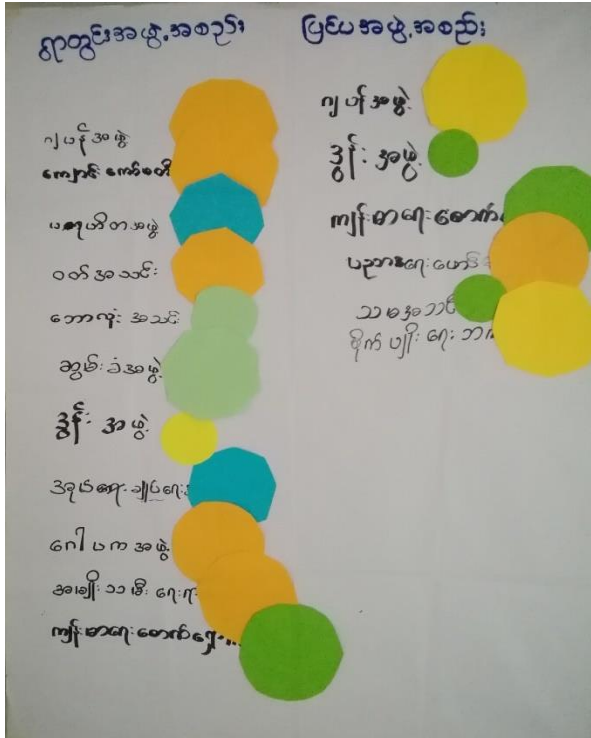 ရွာတွင်းအဖွဲ့အစည်း
ဂျပန်အဖွဲ့
ကျောင်းကော်မတီ
ပရဟိတအဖွဲ့
ဝတ်အသင်း
ဘောလုံးအသင်း
ဆွမ်းခံအဖွဲ့
ဒွန်းအဖွဲ့
ဂေါပကအဖွဲ့
အမျိုးသမီးရေးရ
ကျန်းမာရေးစောက်ရှော
ပြင်ပအဖွဲ့အစည်း
ဂျပန်အဖွဲ့
ဒွန်းအဖွဲ့
ကျန်းမာရေးစောက်
ပညာရေး
သမအသင်
စိုက်ပျိုးရေးဘဏ